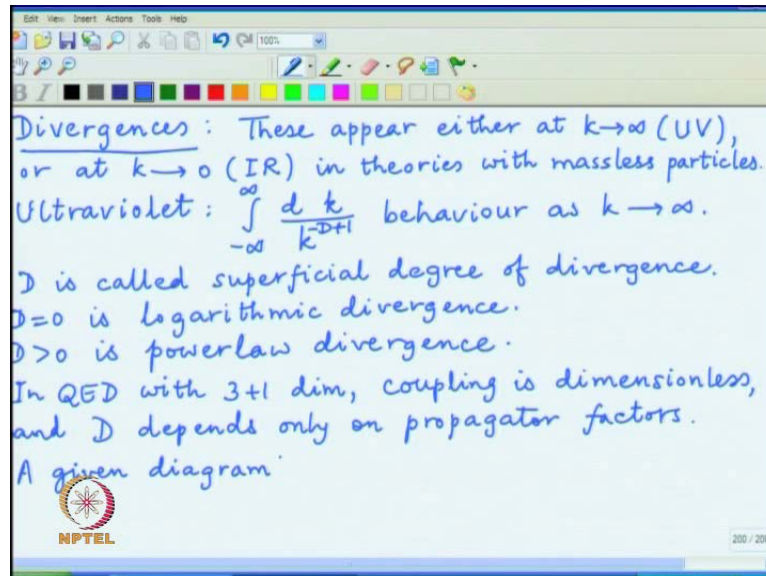 Edit View Insert Actions Tools Help
100%
Divergences : These appear either at k→∞ (UV),
or at k → 0 (IR) in theories with massless particles.
Ultraviolet : ∫_{-∞}^{∞} d k / k^{-D+1} behaviour as k → ∞.
D is called superficial degree of divergence.
D=0 is logarithmic divergence.
D>0 is powerlaw divergence.
In QED with 3+1 dim, coupling is dimensionless,
and D depends only on propagator factors.
A given diagram
NPTEL